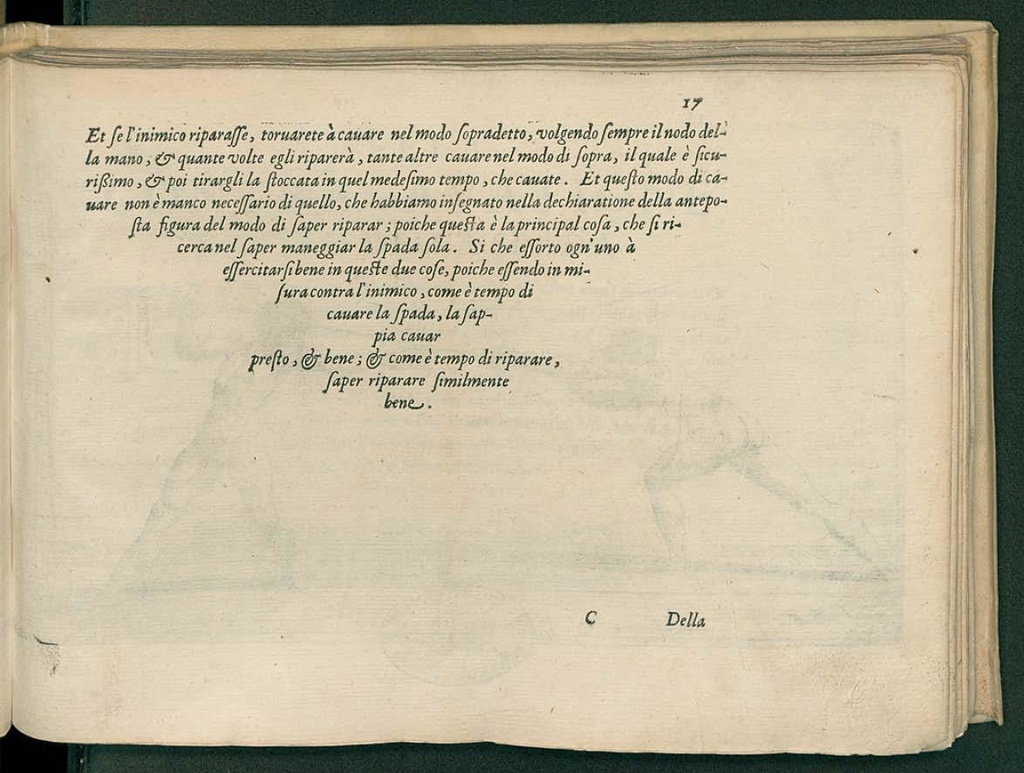 17
Et ſe l'inimico riparaſſe, toruarete à cauare nel modo ſopradetto, volgendo ſempre il nodo del-
la mano, & quante volte egli riparerà, tante altre cauare nel modo di ſopra, il quale è ſicu-
riſſimo, & poi tirargli la ſtoccata in quel medeſimo tempo, che cauate. Et queſto modo di ca-
uare non è manco neceſſario di quello, che habbiamo inſegnato nella dechiaratione della antepo-
ſta figura del modo di ſaper riparar; poiche queſta è la principal coſa, che ſi ri-
cerca nel ſaper maneggiar la ſpada ſola. Si che eſſorto ogn'uno à
eſſercitarſi bene in queſte due coſe, poiche eſſendo in mi-
ſura contra l'inimico, come è tempo di
cauare la ſpada, la ſap-
pia cauar
preſto, & bene; & come è tempo di riparare,
ſaper riparare ſimilmente
bene.
C Della